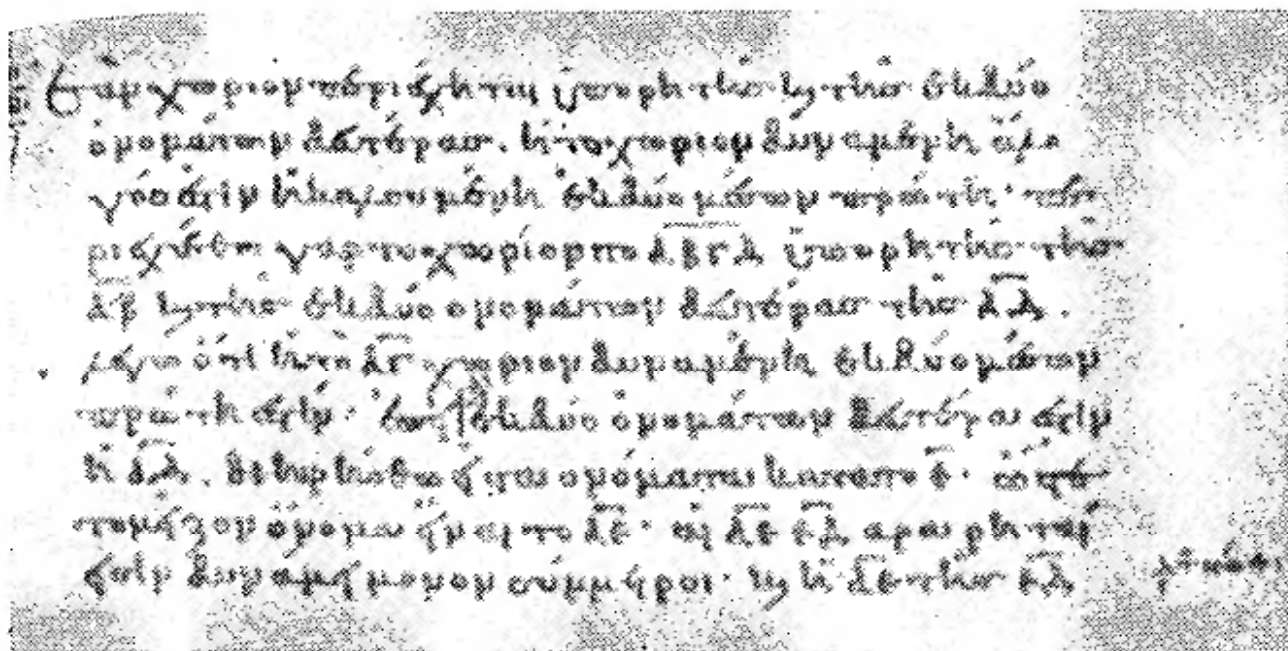 Ἐὰν χωριον περιέχηται ὑπο ρητῆς καὶ τῆς ἐκ δύο
ὀνομάτων δευτέρας, ἡ το χωριον δυναμένη ἄλο
γός ἐστιν ἡ καλουμένη ἐκ δύο μέσων πρώτη· πε
ριεχέσθω γαρ το χωρίον το αβγδ ὑπο ρητῆς τῆς
αβ καὶ τῆς ἐκ δύο ονομάτων δευτέρας τῆς αδ.
λέγω ὅτι ἡ τὸ αγ χωριον δυναμένη ἐκ δύο μέσων
πρώτη ἐστίν· ἐπεὶ γὰρ ἐκ δύο ὀνομάτων δευτέρα ἐστὶν
ἡ αδ. διηρήσθω εἰς τα ονόματα κατα το ε· ὥστε
το μεῖζον ὄνομα εἶναι το αε· αἱ αε εδ αρα ρηταί
εἰσιν δυναμει μονον σύμμετροι· καὶ ἡ αε τῆς εδ